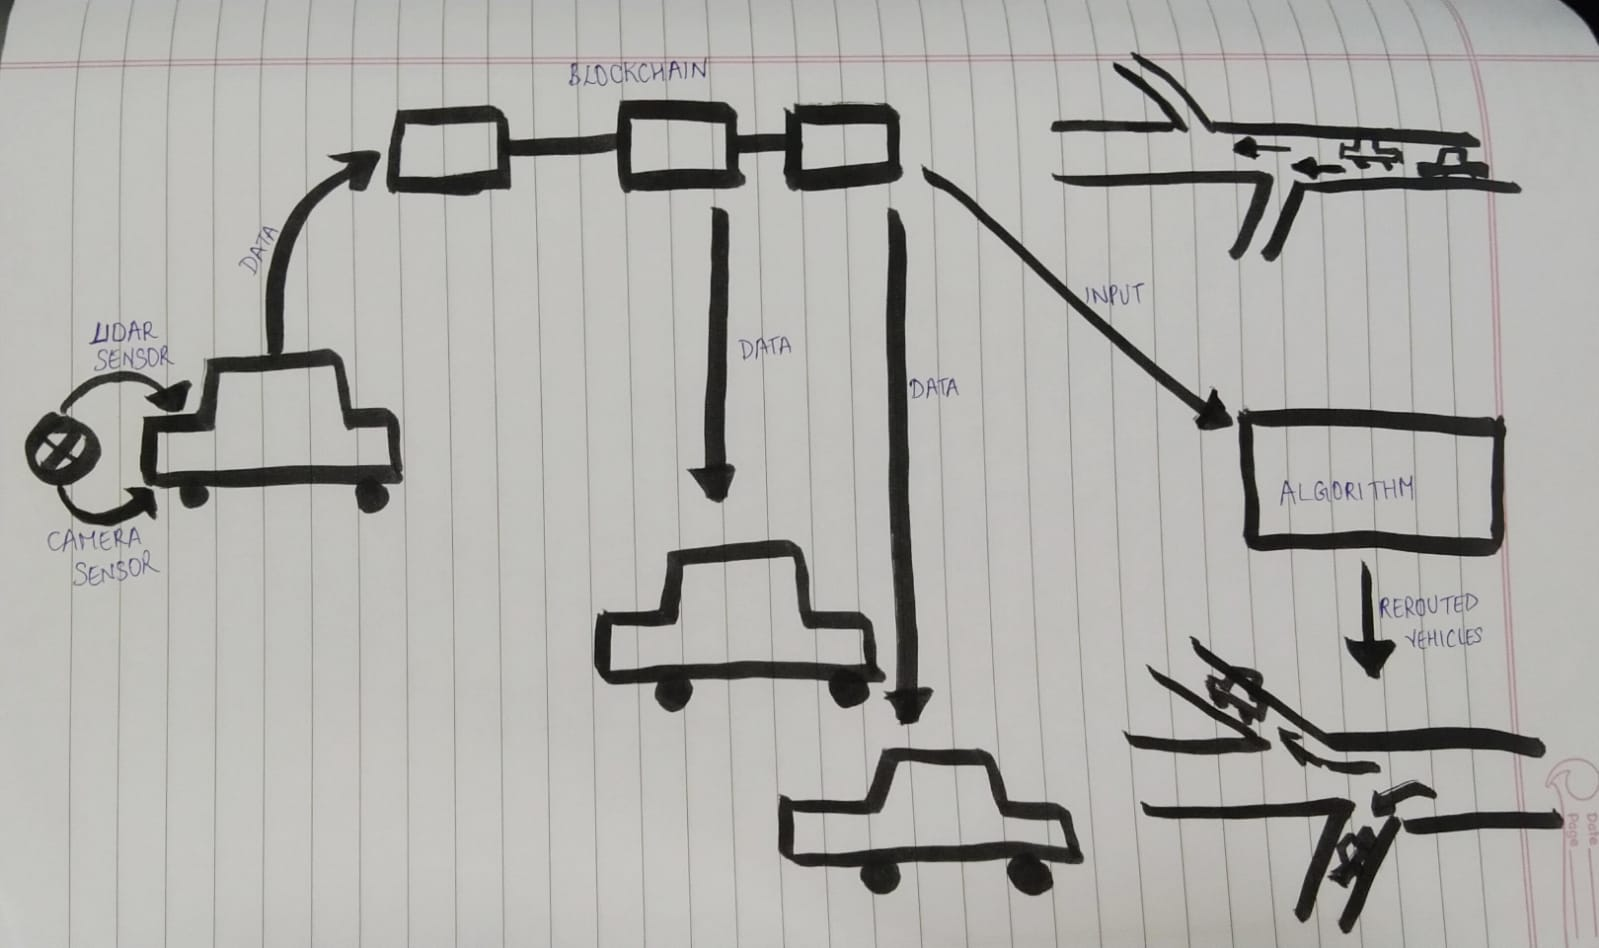 BLOCKCHAIN
DATA
LIDAR
SENSOR
CAMERA
SENSOR
DATA
DATA
INPUT
ALGORITHM
REROUTED
VEHICLES
Date
Page